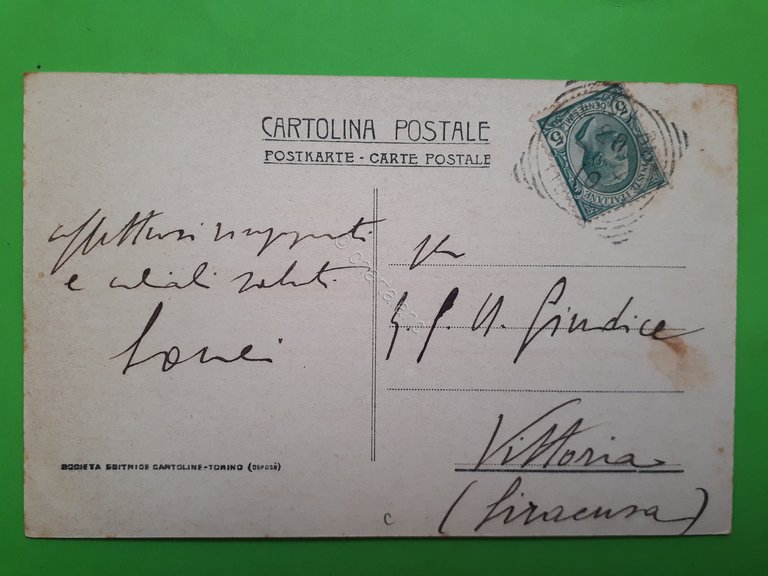 CARTOLINA POSTALE
POSTKARTE - CARTE POSTALE
POSTE ITALIANE
CENTESIMI
5 5
affettuosi
e cordiali saluti
G. Giudice
Vittoria
(Siracusa)
SOCIETA EDITRICE CARTOLINE-TORINO (DEPOSÉ)
C